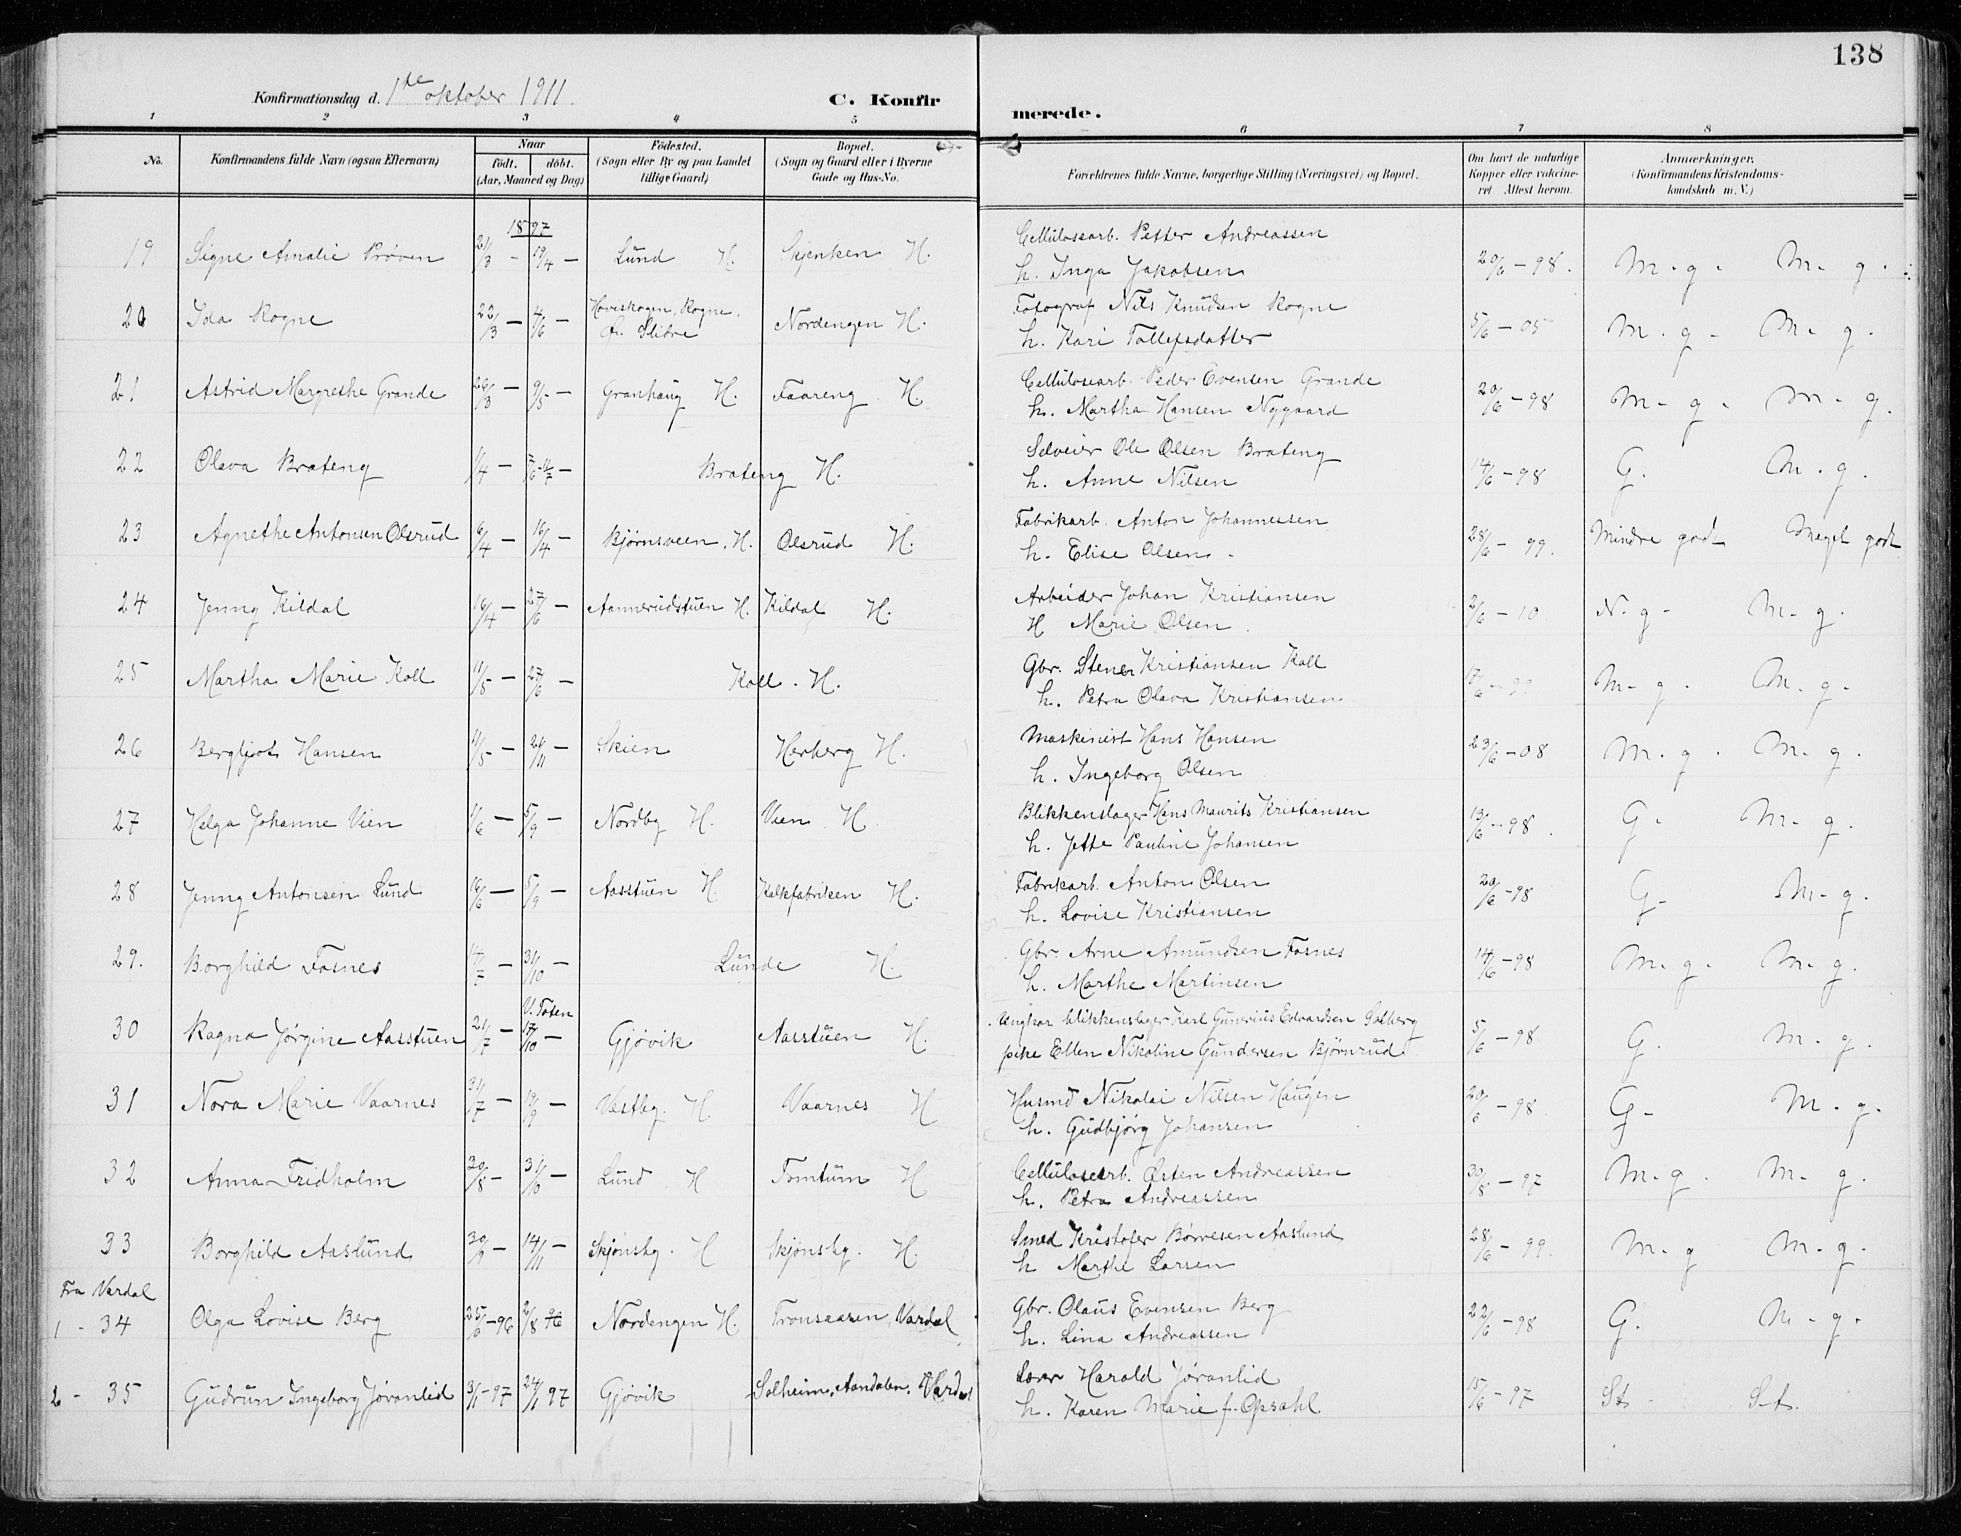 138
Konfirmationsdag d. 1ste oktober 1911. C. Konfirmerede.
1 2 3 4 5 6 7 8
No. Konfirmandens fulde Navn (ogsaa Efternavn) Naar født. døbt. (Aar, Maaned og Dag) Fødested. (Sogn eller By og paa Landet tillige Gaard) Bopæl. (Sogn og Gaard eller i Byerne Gade og Hus-No. Forældrenes fulde Navne, borgerlige Stilling (Næringsvei) og Bopæl. Om havt de naturlige Kopper eller vakcineret. Attest herom. Anmærkninger. (Konfirmandens Kristendomskundskab m. V.)
1897
19 Signe Amalie Prøven 21/3 – 19/4 – Lund H. Skjenken H. Cellulosearb. Petter Andreassen h. Inga Jakobsen 20/6 – 98. M. g. M. g.
20 Ida Rogne 22/3 – 4/6 – Høveskogen, Rogne, Ø. Slidre Nordengen H. Fotograf Nils Knudsen Rogne h. Kari Tollefsdatter 5/6 – 05 M. g. M. g.
21 Astrid Margrethe Grande 26/3 – 9/5 – Granhaug H. Faareng H. Cellulosearb. Peder Evensen Grande h. Martha Hansen Nygaard 20/6 – 98 M. g. M. g.
22 Olava Brateng 1/4 – Brateng H. Selveier Ole Olsen Brateng h. Anne Nilsen 14/6 – 98 G. M. g.
23 Agnethe Antonsen Olsrud 6/4 – 16/4 – Bjørnsveen. H. Olsrud H. Fabrikarb. Anton Johannessen h. Elise Olsen. 28/6 – 99. Mindre godt Meget godt
24 Jenny Kildal 16/4 – 27/6 – Aannerudstuen H. Kildal H. Arbeider Johan Kristiansen H Marie Olsen 2/6 – 10 N. g. M. g.
25 Martha Marie Koll 11/5 – 27/6 – Koll. H. Gbr. Stener Kristiansen Koll h. Petra Olava Kristiansen M. g. M. g.
26 Bergljot Hansen 11/5 – 21/11 – Skien Herberg H. Maskinist Hans Hansen h. Ingeborg Olsen 23/6 – 08 M. g. M. g.
27 Helga Johanne Vien 1/6 – 5/9 – Nordby H. Vien H Blikkenslager Hans Maurits Kristiansen h. Jette Pauline Johansen 13/6 – 98. G. M. g.
28 Jenny Antonsen Lund 16/6 – 5/9 – Aasstuen H. Kalkfabriken H. Fabrikarb. Anton Olsen h. Lovise Kristiansen 20/6 – 98 G. M. g.
29. Borghild Fosnes 17/7 – 31/10 – Lunde H. Gbr. Arne Amundsen Fosnes h. Marthe Martinsen 14/6 – 98 M. g. M. g.
30 Ragna Jørgine Aasstuen 21/7 – V. Toten 17/10 – Gjøvik Aasstuen H. Ungkar blikkenslager Karl Gunerius Edvardsen Solberg pike Ellen Nikoline Gundersen Bjørnrud 5/6 – 98 G. M. g.
31 Nora Marie Vaarnes 31/7 – 19/9 – Vestby. H. Vaarnes H Husmd Nikolai Nilsen Haugen h. Gudbjørg Johansen 20/6 – 98. G. M. g.
32 Anna Fridholm 20/8 – 31/10 – Lund H Tomtum H Cellulosearb. Østen Andreassen h. Petra Andreassen 30/8 – 97 M. g. M. g.
33 Borghild Aaslund 30/9 – 14/11 – Skjønsby. H Skjønsby. H. Smed Kristofer Børresen Aaslund h Marthe Larsen 28/6 – 99. M. g M. g.
Fra Vardal
1 - 34 Olga Lovise Berg 25/6 – 96 2/8 96 Nordengen H. Tronsaasen, Vardal Gbr. Olaus Evensen Berg h. Lina Andreassen 22/6 – 98 G. M. g.
2 - 35 Gudrun Ingeborg Jøranlid 3/1 – 97 24/1 97 Gjøvik Solheim, Aandalen. Vardal Lærer Harald Jøranlid h. Karen Marie f. Opsahl 15/6 – 97 St. St.